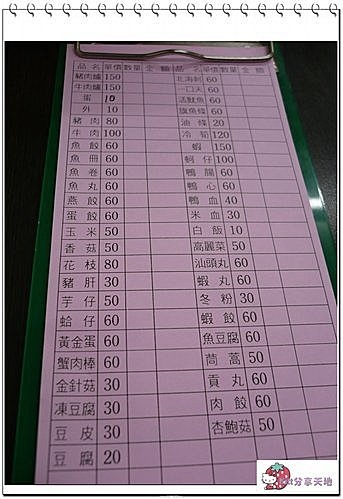 品名 單價 數量 金額 品名 單價 數量 金額
豬肉爐 150
牛肉爐 150
蛋 10
外 10
豬肉 80
牛肉 100
魚餃 60
魚冊 60
魚卷 60
魚丸 60
燕餃 60
蛋餃 60
玉米 50
香菇 50
花枝 80
豬肝 30
芋仔 50
蛤仔 60
黃金蛋 60
蟹肉棒 60
金針菇 30
凍豆腐 30
豆皮 30
豆腐 20
北海刺 60
一口天 60
活魷魚 60
旗魚條 60
油條 20
冷筍 120
蝦 150
蚵仔 100
鴨腸 60
鴨心 60
鴨血 40
米血 30
白飯 10
高麗菜 50
汕頭丸 60
蝦丸 60
冬粉 30
蝦餃 60
魚豆腐 60
茼蒿 50
貢丸 60
肉餃 60
杏鮑菇 50
分享天地